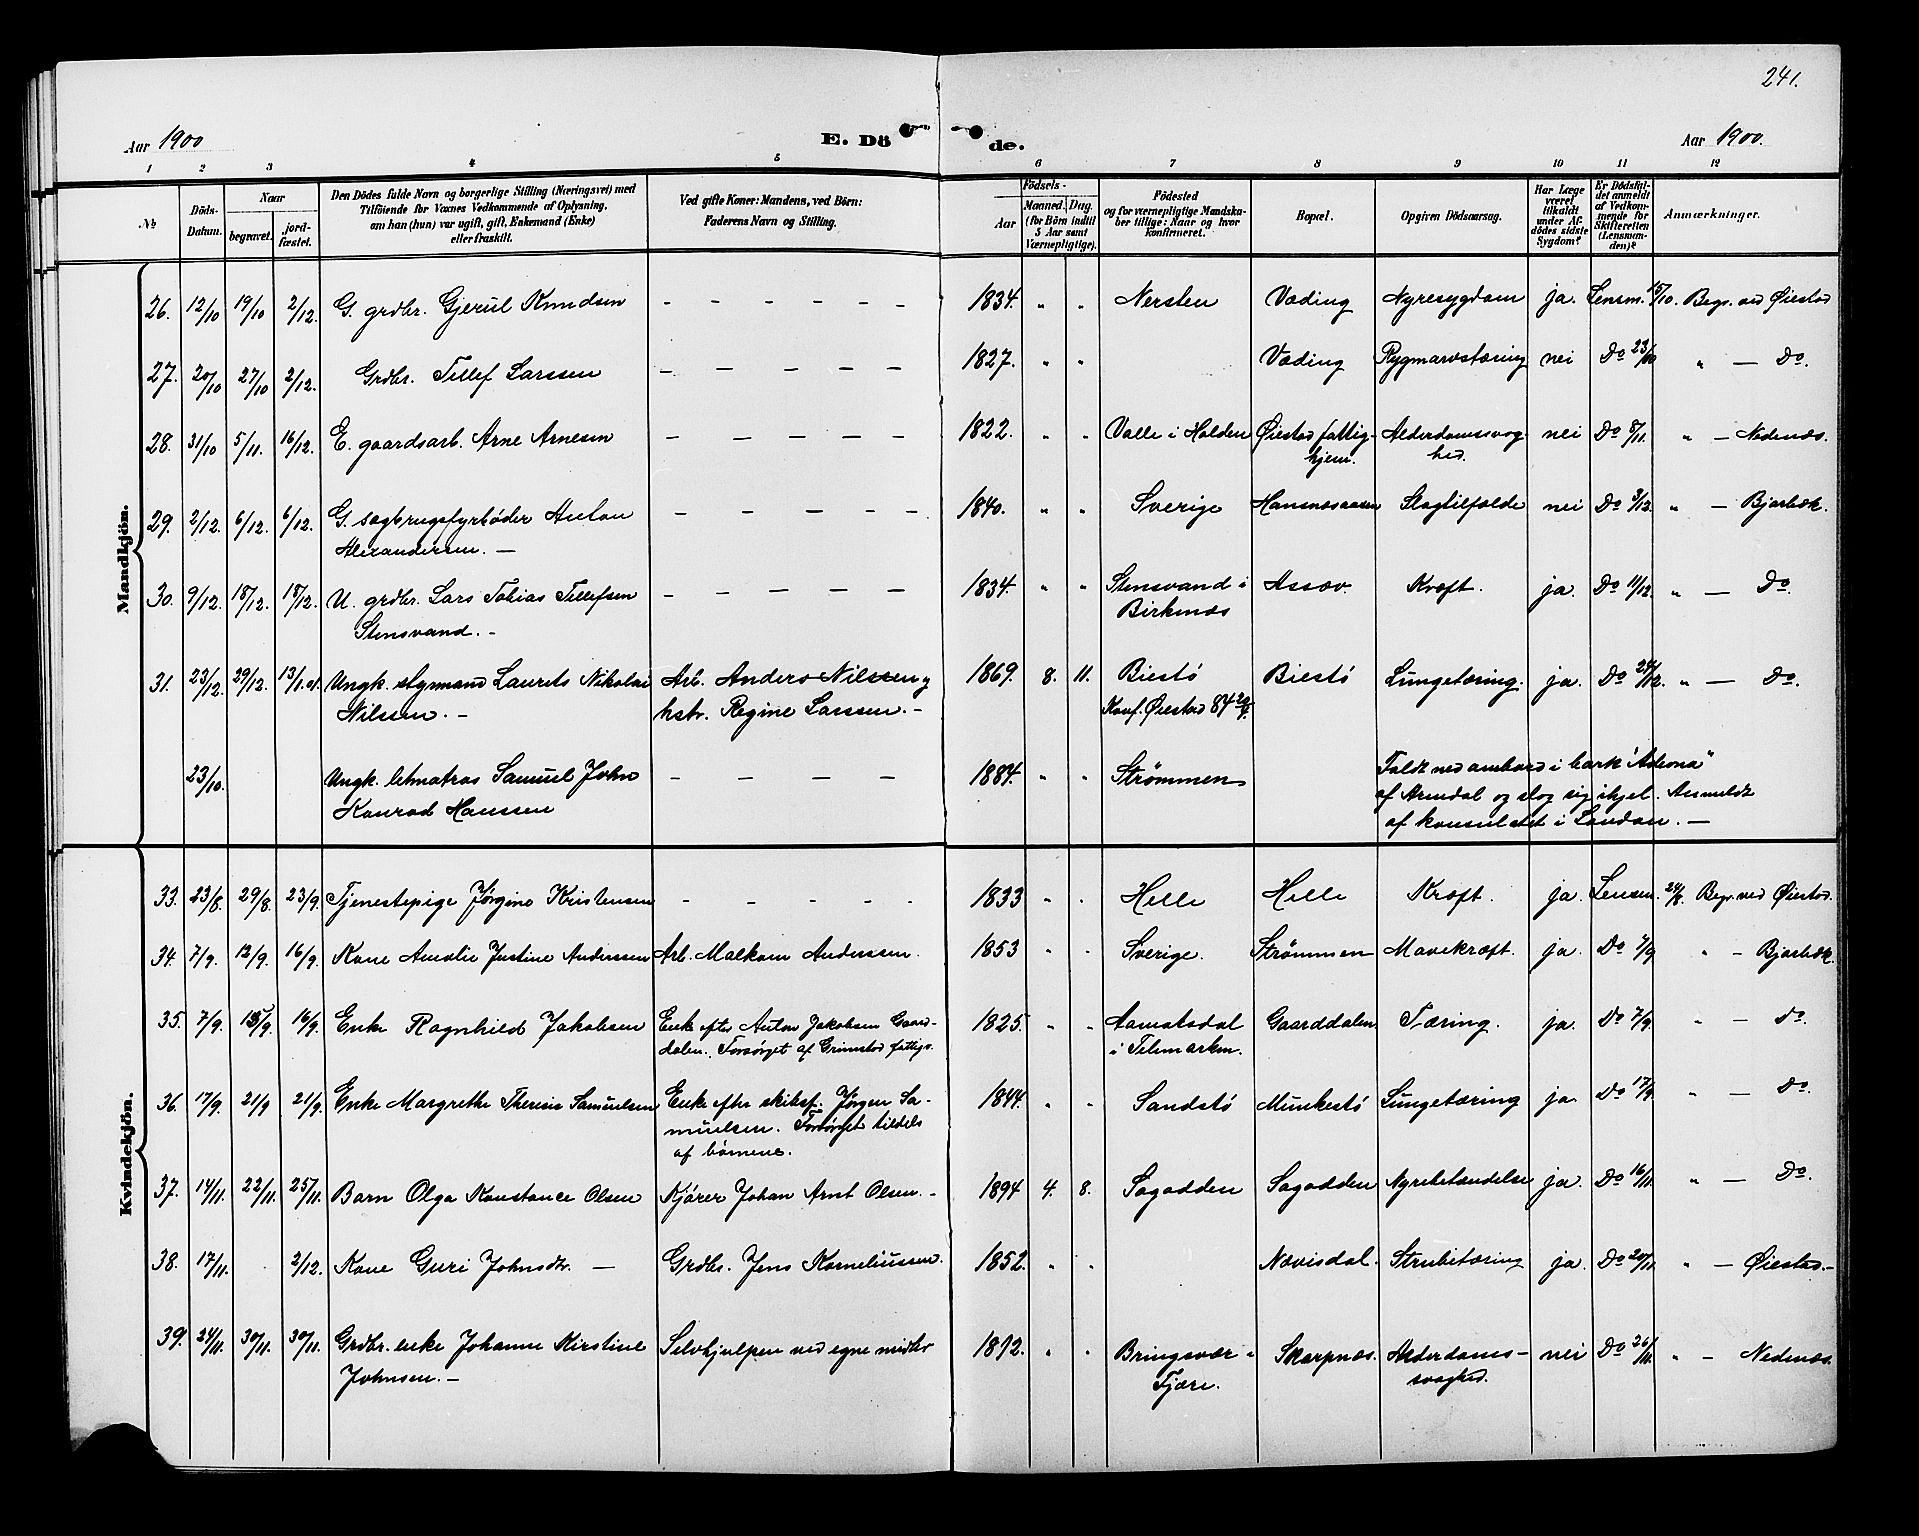 241.
Aar 1900
E. Dö de.
Aar 1900.
1 2 3 4 5 6 7 8 9 10 11 12
№
Döds-Datum.
Naar
begravet.
jord-fæstet.
Den Dödes fulde Navn og borgerlige Stilling (Næringsvei) med
Tilföiende for Voxnes Vedkommende af Oplysning,
om han (hun) var ugift, gift, Enkemand (Enke)
eller fraskilt.
Ved gifte Koner: Mandens, ved Börn:
Faderens Navn og Stilling.
Födsels-
Aar
Maaned. Dag.
(for Börn indtil
5 Aar samt
Værnepligtige).
Födested
og for værnepligtige Mandska-
ber tillige: Naar og hvor
konfirmeret.
Bopæl.
Opgiven Dödsaarsag.
Har Læge
været
tilkaldt
under Af-
dödes sidste
Sygdom?
Er Dödsfal-
det anmeldt
af Vedkom-
mende for
Skifteretten
(Lensman-
den)?
Anmærkninger.
Mandkjön.
26. 12/10 19/10 2/12. G. grdbr. Gjerul Knudsen – – – – – 1834. " " Nersten Væding Nyresygdom ja. Lensm. 15/10. Begr. ved Øiestad
27. 20/10 27/10 2/12. Grdbr. Tellef Larssen – – – – – 1827. " " Væding Rygmarvstæring nei Do 23/10 " — Do.
28. 31/10 5/11. 16/12. E. gaardsarb. Arne Arnesen – – – – – 1822. " " Valle i Holden Øiestad fattig- Alderdomssvag- nei Do 8/11. " — Nedenæs.
hjem. hed.
29. 2/12. 6/12. 6/12. G. sagbrugsfyrbøder Anton – – – – – 1840. " " Sverige Hansnæsaasen Slagtilfælde nei Do 3/12. " — Bjorbæk.
Alexandersen. —
30. 9/12. 18/12. 18/12. U. grdbr. Lars Tobias Tellefsen – – – – – 1834. " " Stensvand i Assæv. Kræft. ja Do 11/12. " — Do.
Stensvand. – Birkenæs
31. 23/12. 29/12. 13/1.01. Ungk. styrmand Laurits Nikolai Arb. Anders Nilssen og 1869. 8. 11. Biestö Biestö Lungetæring. ja. Do 24/12. " — Do.
Nilssen. – hstr. Regine Larssen. – Konf. Øiestad 84
23/10. Ungk. letmatros Samuel John – – – – 1884. " " Strømmen Faldt ned ombord i bark "Adeona"
Konrad Hanssen af Arendal og slog sig ihjel. Anmeldt
af konsulatet i London. —
Kvindekjön.
33. 23/8. 29/8. 23/9. Tjenestepige Jørgine Kristensen – – – – – 1833 " " Helle Helle Kræft. ja. Lensm. 24/8. Begr. ved Øiestad.
34. 7/9. 12/9. 16/9. Kone Amalie Justine Anderssen Arb. Malkom Anderssen. 1853 " " Sverige. Strømmen Mavekræft. ja. Do 7/9 " – Bjorbæk.
35. 7/9. 15/9. 16/9. Enke Ragnhild Jakobsen Enke efter Anton Jakobsen Gaard- 1825. " " Aamotsdal Gaarddalen Tæring. ja Do 7/9. " — Do.
dalen. Forsørget af Grimstad fattigs. i Telemarken.
36. 17/9. 21/9 21/9. Enke Margrethe Theresie Samuelsen Enke efter skibsf. Jørgen Sa- 1844. " " Sandstö Munkestö Lungetæring ja Do 17/9 " — Do.
muelsen. Forsørget tildels
af børnene.
37. 14/11. 22/11. 25/11. Barn Olga Konstance Olsen Kjører Johan Arnt Olsen. – 1894 4. 8. Sagodden Sagodden Nyrebetændelse ja. Do 16/11. " — Do.
38. 17/11. 2/12. Kone Guri Johnsdtr. — Grdbr. Jens Korneliussen. 1852. " " Nævisdal. Strubetæring ja. Do 20/11. " — Øiestad.–
39. 24/11. 30/11. 30/11. Grdbr.enke Johanne Kirstine Selvhjulpen ved egne midler 1812. " " Bringsvær i Skarpnæs. Alderdoms- nei Do 26/11. " – Nedenæs.
Johnsen. – Fjære. svaghed.